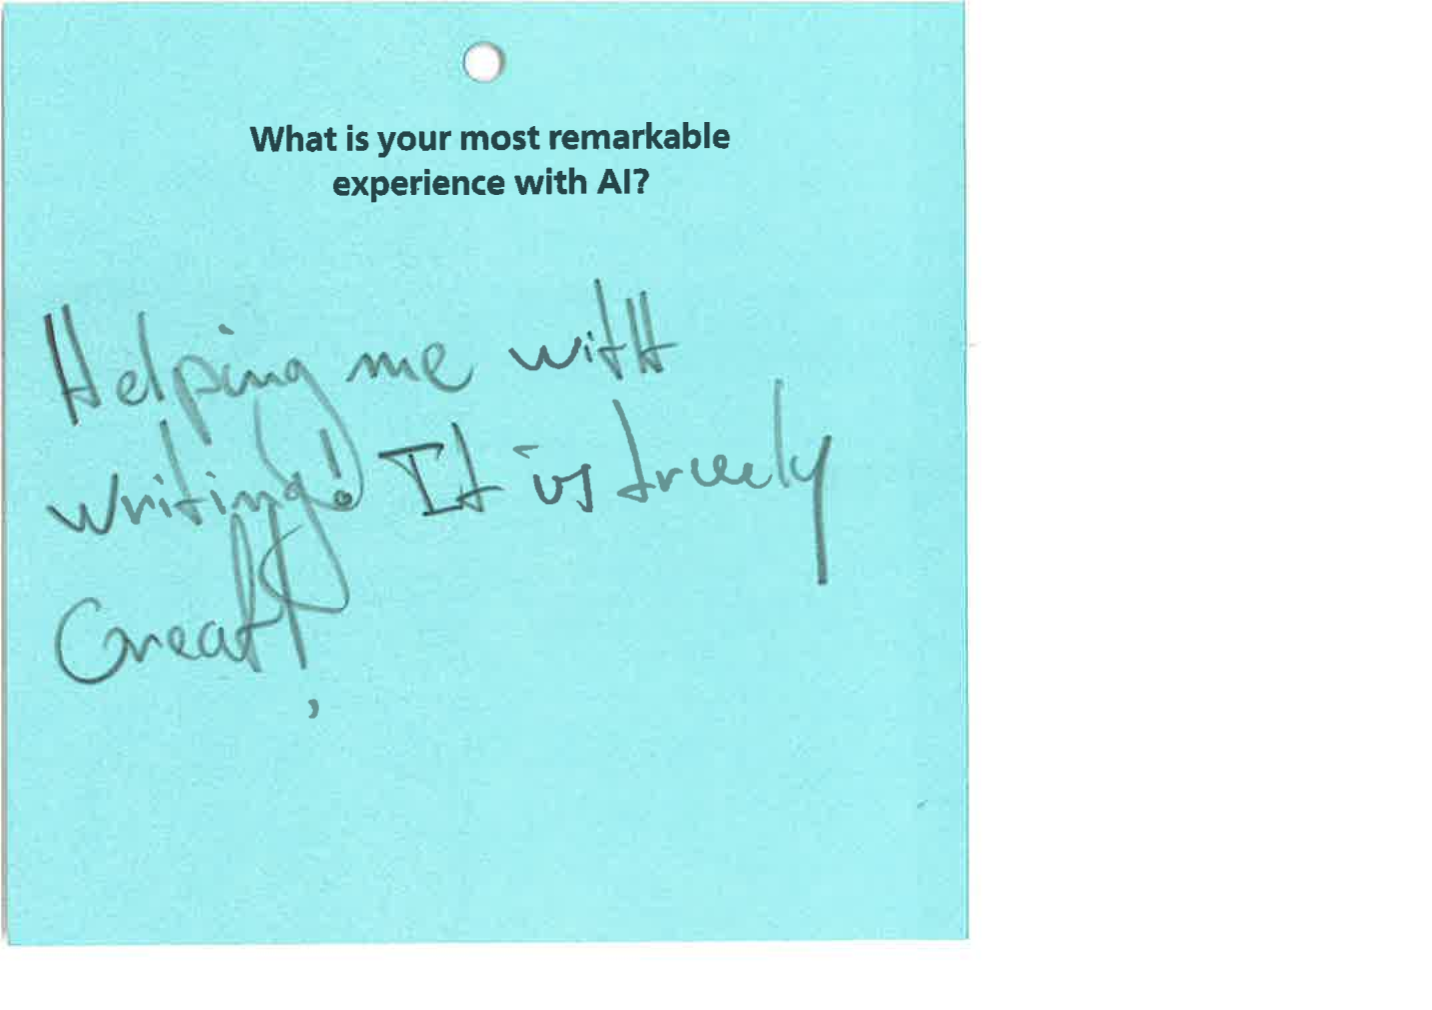 What is your most remarkable
experience with AI?
Helping me with
writing! It is truely
Great!